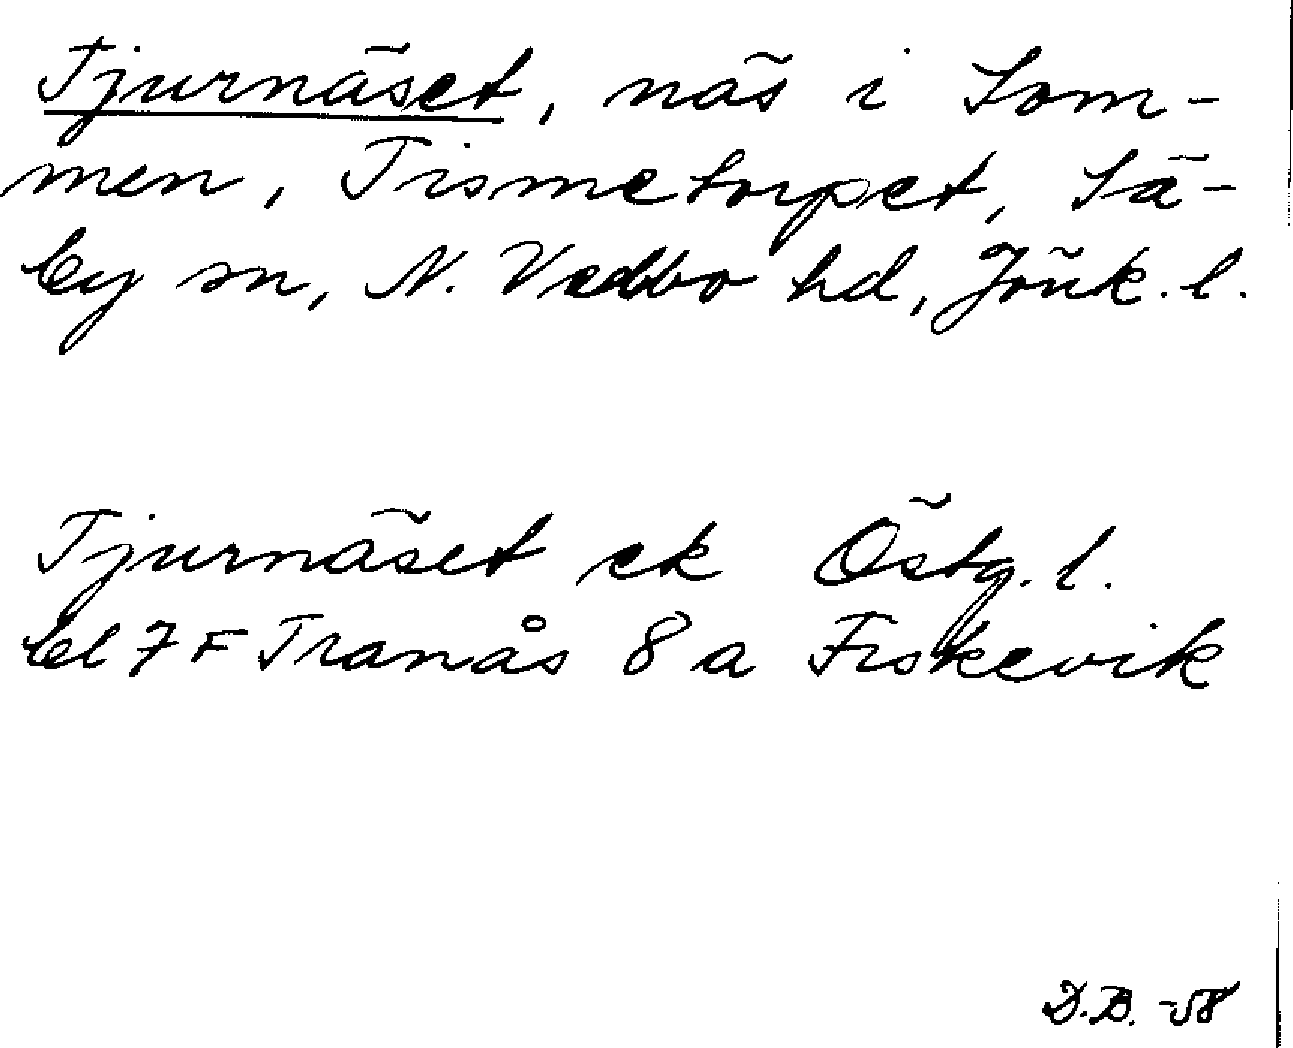 Tjurnäset, näs i Som-
men, Tismetorpet, Sä-
by sn, N. Vedbo hd, Jönk. l.
Tjurnäset ek Östg. l.
bl 7F Tranås 8a Fiskevik
D.B. -58